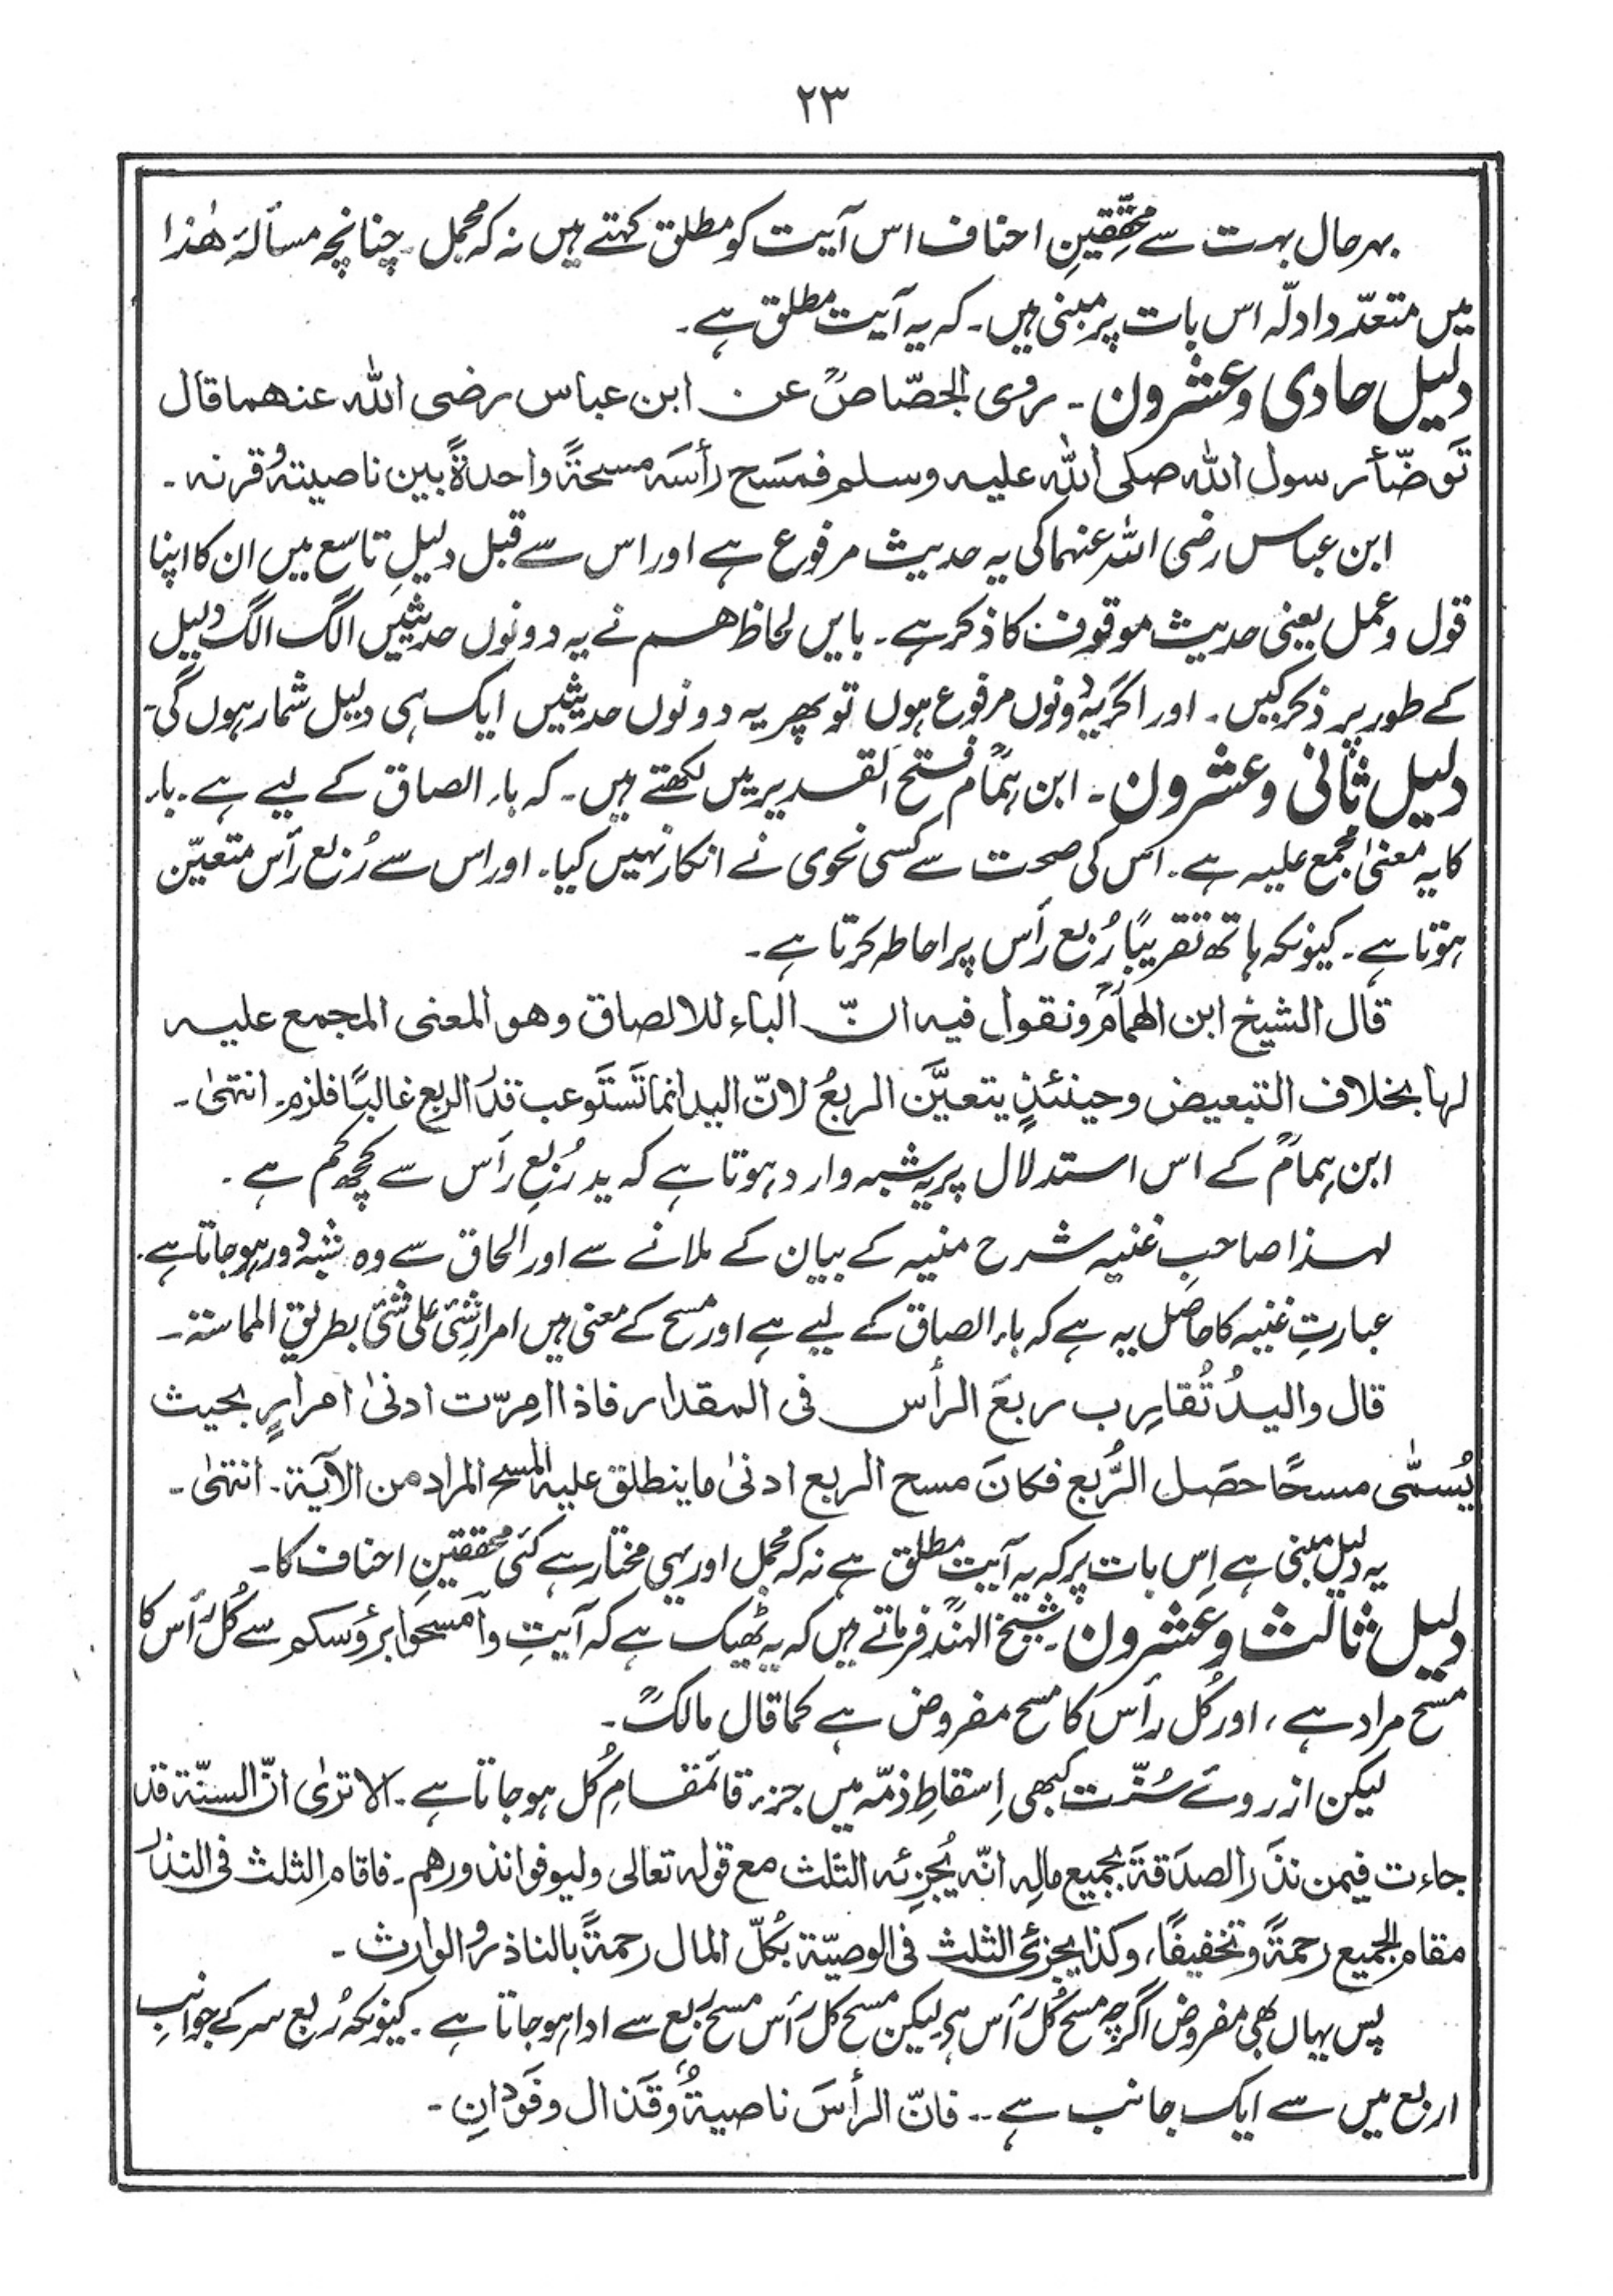 ۲۳
بہرحال بہت سے محققینِ احناف اس آیت کو مطلق کہتے ہیں نہ کہ مجمل۔ چنانچہ مسألۂ ھٰذا
میں متعدّد ادلّہ اس بات پر مبنی ہیں۔ کہ یہ آیت مطلق ہے۔
دلیل حادی وعشرون۔ روی الجصّاصؒ عن ابن عباس رضی اللہ عنھما قال
تَوضّأ رسول اللہ صلی اللہ علیہ وسلم فمَسَح رأسَہ مسحۃً واحدۃً بین ناصیتہ وقرنہ۔
ابن عباس رضی اللہ عنہما کی یہ حدیث مرفوع ہے اور اس سے قبل دلیلِ تاسع میں ان کا اپنا
قول وعمل یعنی حدیث موقوف کا ذکر ہے۔ بایں لحاظ ھم نے یہ دونوں حدیثیں الگ الگ دلیل
کے طور پر ذکر کیں۔ اور اگر یہ دونوں مرفوع ہوں تو پھر یہ دونوں حدیثیں ایک ہی دلیل شمار ہوں گی۔
دلیل ثانی وعشرون۔ ابن ہمامؒ فتح القدیر میں لکھتے ہیں۔ کہ باء الصاق کے لیے ہے۔ باء
کا یہ معنیٰ مجمع علیہ ہے۔ اس کی صحت سے کسی نحوی نے انکار نہیں کیا۔ اور اس سے رُبع رأس متعیّن
ہوتا ہے۔ کیونکہ ہاتھ تقریبًا رُبع رأس پر احاطہ کرتا ہے۔
قال الشیخ ابن الھمامؒ ونقول فیہ انّ الباء للالصاق وھو المعنی المجمع علیہ
لہا بخلاف التبعیض وحینئذٍ یتعیَّن الربعُ لانّ الید انما تَستَوعب قدرَ الربع غالبًا فلزم۔ انتہیٰ۔
ابن ہمامؒ کے اس استدلال پر یہ شبہ وارد ہوتا ہے کہ ید رُبعِ رأس سے کچھ کم ہے۔
لہذا صاحبِ غنیہ شرح منیہ کے بیان کے ملانے سے اور الحاق سے وہ شبہ دور ہو جاتا ہے۔
عبارتِ غنیہ کا حاصل یہ ہے کہ باء الصاق کے لیے ہے اور مسح کے معنی ہیں امرار شئ علی شئ بطریق المماسۃ۔
قال والیدُ تُقارِب ربعَ الرأس فی المقدار فاذا اُمِرّت ادنیٰ امرارٍ بحیث
یُسمّٰی مسحًا حصَل الرُّبع فکانَ مسح الربع ادنیٰ ما ینطلق علیہ المسح المراد من الآیۃ۔ انتہیٰ۔
یہ دلیل مبنی ہے اِس بات پر کہ یہ آیت مطلق ہے نہ کہ مجمل اور یہی مختار ہے کئی محققینِ احناف کا۔
دلیل ثالث وعشرون۔ شیخ الہندؒ فرماتے ہیں کہ یہ ٹھیک ہے کہ آیتِ وامسحوا برؤسکم سے کُل رأس کا
مسح مراد ہے، اور کُل رأس کا مسح مفروض ہے کما قال مالکؒ۔
لیکن از روئے سُنّت کبھی اِسقاطِ ذمّہ میں جزء قائمقامِ کُل ہو جاتا ہے۔ الا تریٰ انّ السنّۃ قد
جاءت فیمن نذَر الصدَقۃَ بجمیع مالِہ انّہ یُجزِئہ الثلث مع قولہ تعالی ولیوفوا نذورھم۔ فاقام الثلث فی النذر
مقام الجمیع رحمۃً وتخفیفًا، وکذا یجزئ الثلث فی الوصیّۃ بکُلّ المال رحمۃً بالناذر والوارث۔
پس یہاں بھی مفروض اگرچہ مسح کُل رأس ہے لیکن مسح کل رأس مسح ربع سے ادا ہو جاتا ہے۔ کیونکہ رُبع سر کے جوانبِ
اربع میں سے ایک جانب ہے۔۔ فانّ الرأسَ ناصیۃٌ وقَذال وفَودانِ۔